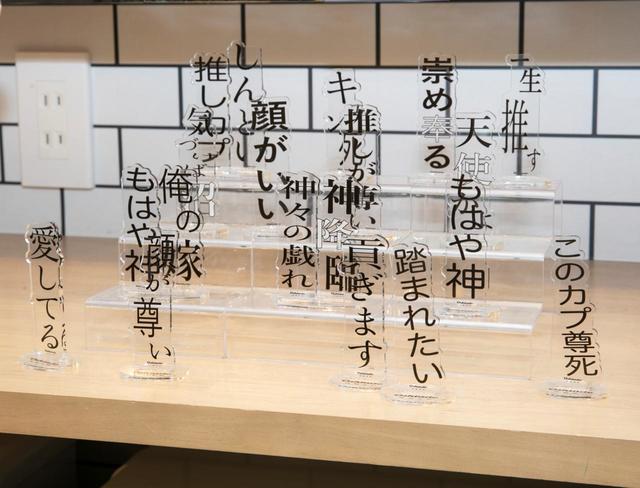 愛してる
もはや神
顔が尊い
俺の嫁
推しカプ
しんどい
顔がいい
神々の戯れ
推しが尊い
神降臨
貢ぎます
踏まれたい
崇め奉る
天使
もはや神
一生推す
このカプ尊死